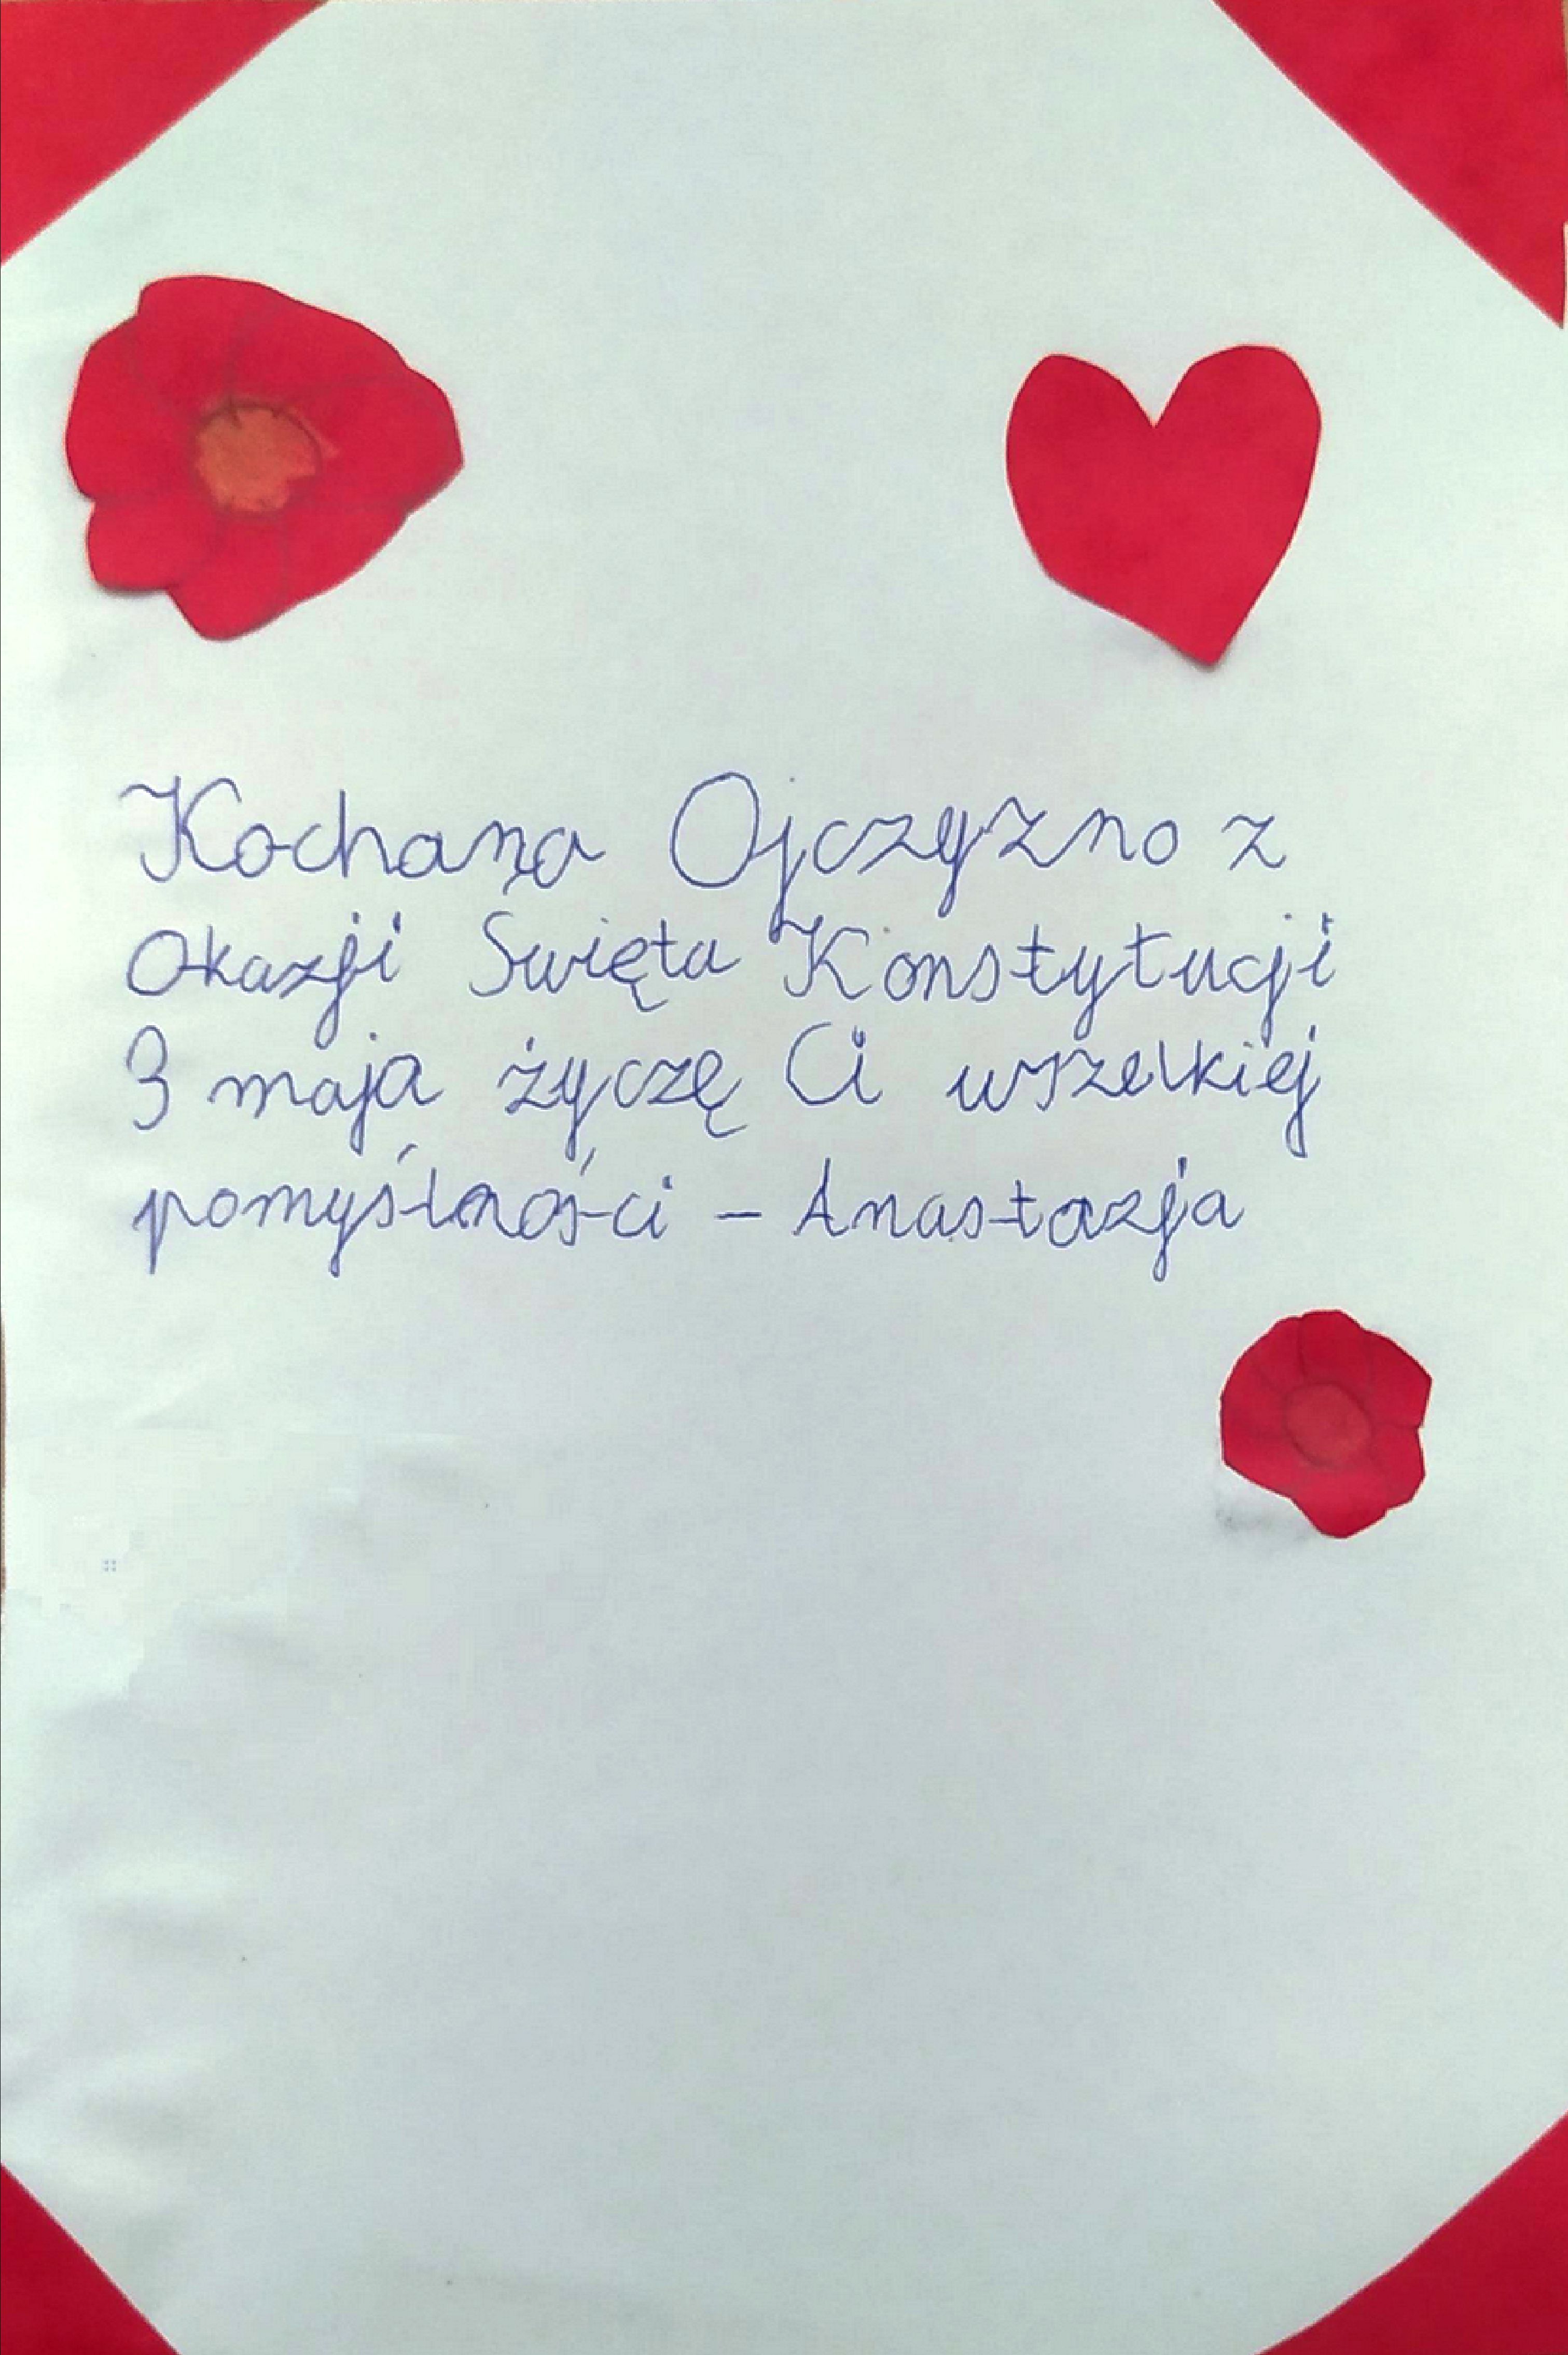 Kochana Ojczyzno z
Okazji Swięta Konstytucji
3 maja życzę Ci wszelkiej
pomyślności - Anastazja